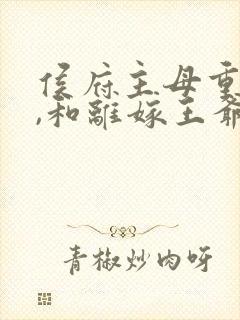 侯府主母重
,和離嫁王爺
青椒炒肉呀